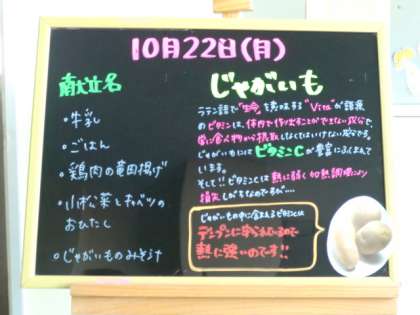 10月22日(月)
献立名
・牛乳
・ごはん
・鶏肉の竜田揚げ
・小松菜とキャベツの
おひたし
・じゃがいものみそ汁
じゃがいも
ラテン語で"生命"を意味する"Vita"が語源
のビタミンは、体内で作り出すことができない成分で、
常に食べ物から摂取しなくてはいけない成分です。
じゃがいもにはビタミンCが豊富にふくまれて
います。
そして!!ビタミンCは熱に弱く加熱調理により
損失しがちなのですが…
じゃがいも中に含まれるビタミンCは
デンプンに守られているので
熱に強いのです!!